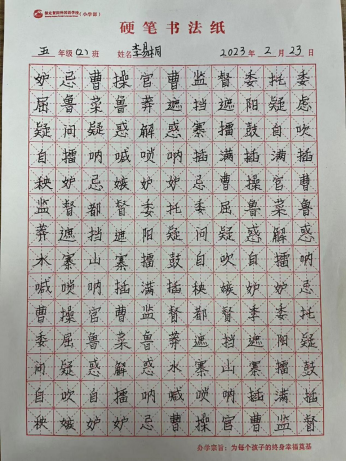 (小学部)
硬笔书法纸
五年级(2)班 姓名 李易桐 2023年2月23日
妒忌曹操宫曹监督委托委
屈鲁菜鲁莽遮挡遮阳疑虑
疑问疑惑解惑寨擂鼓自吹
自擂呐喊唢呐插满插满插
秧妒忌嫉妒妒忌曹操宫曹
监督都督委托委屈鲁菜鲁
莽遮挡遮阳疑问疑惑解惑
水寨山寨擂鼓自吹自擂呐
喊唢呐插满插秧嫉妒妒忌
曹操宫曹监督都督委委托
委屈鲁菜鲁莽遮挡遮阳疑
问疑惑解惑水寨山寨擂鼓
自吹自擂呐喊唢呐插满插
秧嫉妒妒忌曹操宫曹监督
办学宗旨：为每个孩子的终身幸福奠基